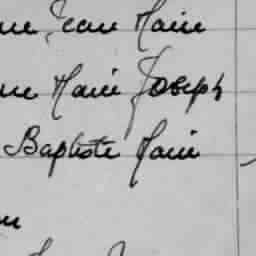 Jean Marie
Marie Joseph
Baptiste Marie